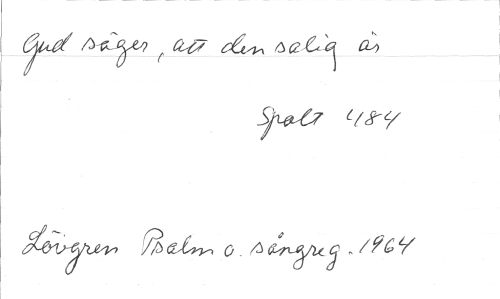 Gud säger, att den salig är
Spalt 484
Lövgren Psalm o. sångreg. 1964